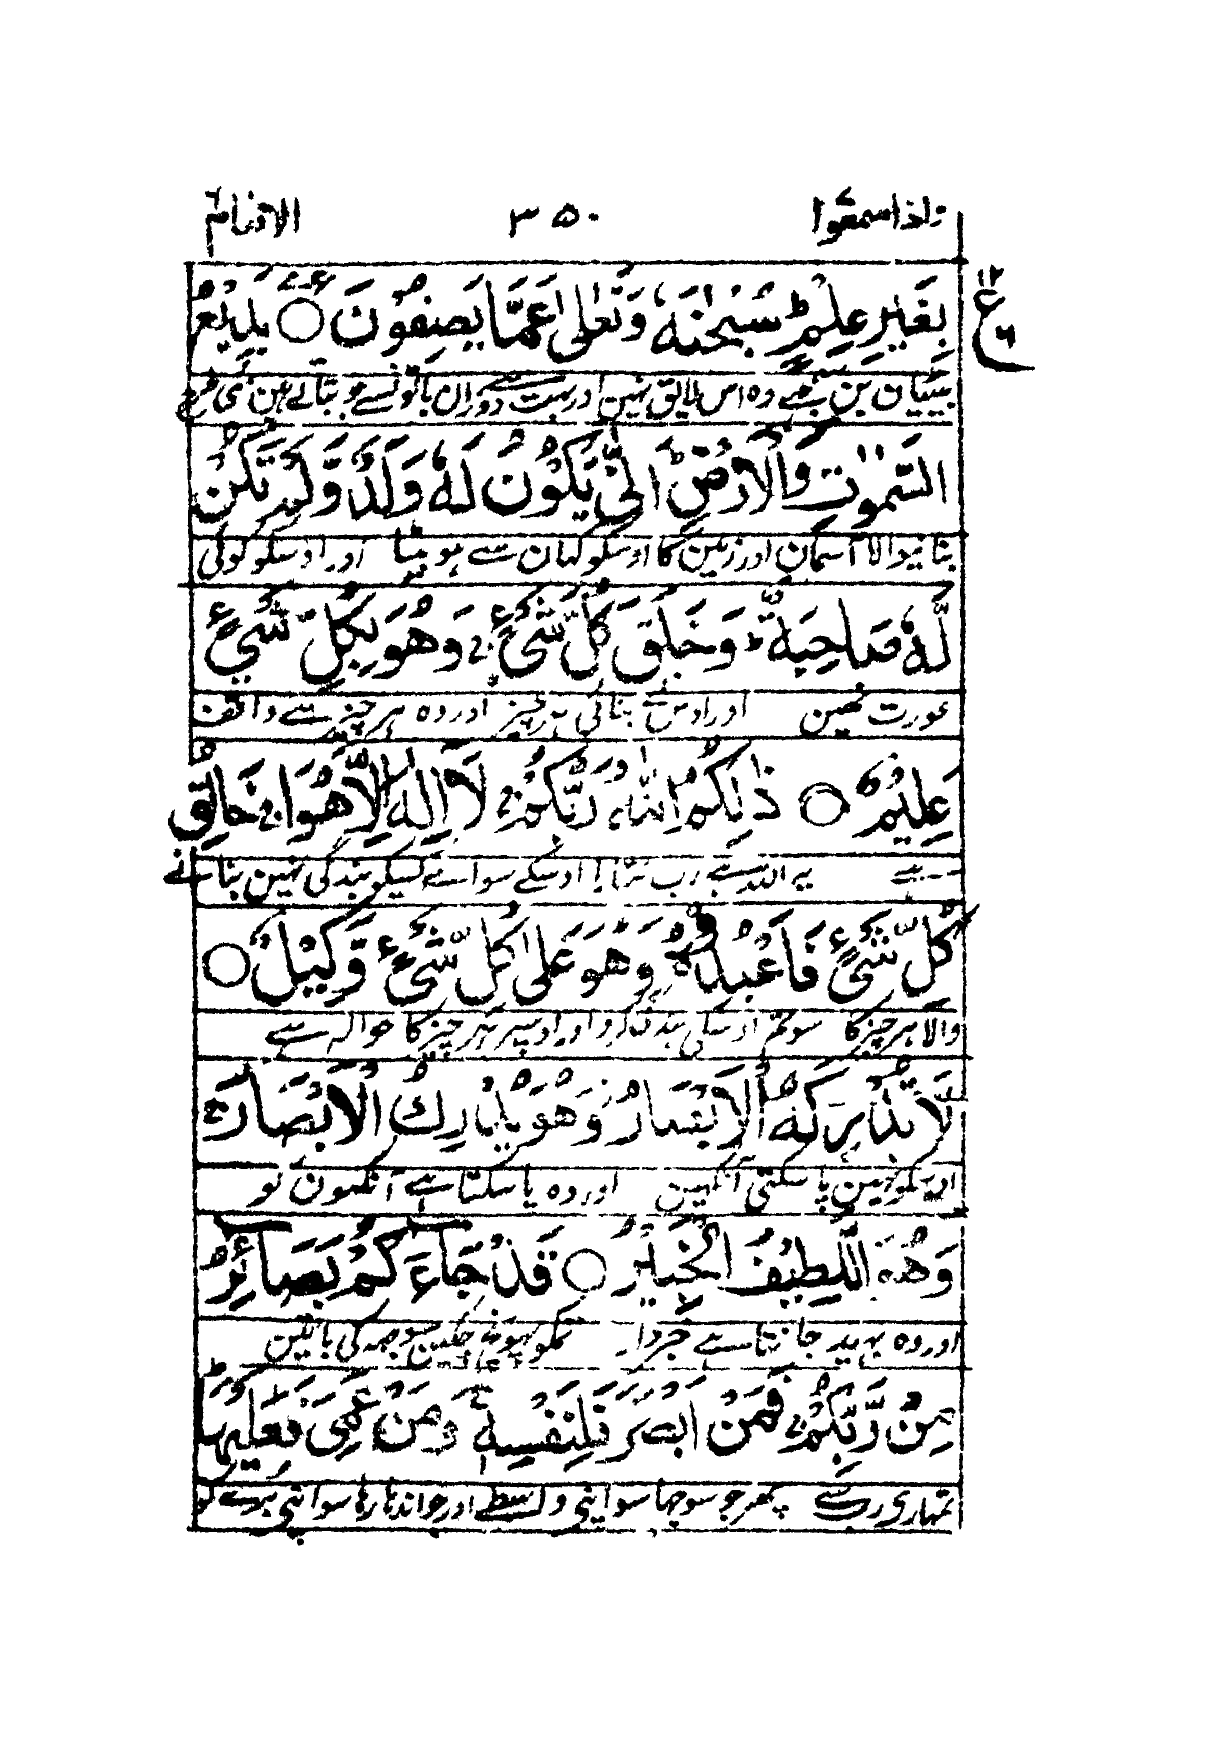 واذاسمعوا ۳۵۰ الانعام
بِغَيْرِ عِلْمٍ ط سُبْحٰنَهٗ وَتَعٰلٰى عَمَّا يَصِفُوْنَ ○ بَدِيْعُ
بیٹیان بن سمجھے وہ اس لایق نہین اور بہت دور ان باتونسے جو بتاتے ہین نئی طرح
السَّمٰوٰتِ وَالْاَرْضِ ط اَنّٰى يَكُوْنُ لَهٗ وَلَدٌ وَّلَمْ تَكُنْ
بنانیوالا آسمان اور زمین کا اوسکو کہان سے ہو بیٹا اور اوسکو کوئی
لَّهٗ صَاحِبَةٌ ط وَخَلَقَ كُلَّ شَيْءٍ ج وَهُوَ بِكُلِّ شَيْءٍ
عورت نہین اور اوس نے بنائی ہر چیز اور وہ ہر چیز سے واقف
عَلِيْمٌ ○ ذٰلِكُمُ اللّٰهُ رَبُّكُمْ ج لَآ اِلٰهَ اِلَّا هُوَ ج خَالِقُ
ہے یہ اللہ ہے رب تمہارا اوسکے سوائے کسیکو بندگی نہین بنانے
كُلِّ شَيْءٍ فَاعْبُدُوْهُ ج وَهُوَ عَلٰى كُلِّ شَيْءٍ وَّكِيْلٌ ○
والا ہر چیز کا سو تم اوسکی بندگی کرو اور اوسپر ہر چیز کا حوالہ ہے
لَا تُدْرِكُهُ الْاَبْصَارُ ز وَهُوَ يُدْرِكُ الْاَبْصَارَ ج
اوسکو نہین پا سکتی آنکھین اور وہ پا سکتا ہے آنکھون کو
وَهُوَ اللَّطِيْفُ الْخَبِيْرُ ○ قَدْ جَآءَكُمْ بَصَآئِرُ
اور وہ بہید جانتا ہے خبردار تمکو پہونچ چکین سوجہہ کی باتین
مِنْ رَّبِّكُمْ ج فَمَنْ اَبْصَرَ فَلِنَفْسِهٖ ج وَمَنْ عَمِيَ فَعَلَيْهَا ط
تمہاری رب سے پھر جو سوجہا سو اپنی واسطے اور جو اندہا رہا سو اپنی برے کو